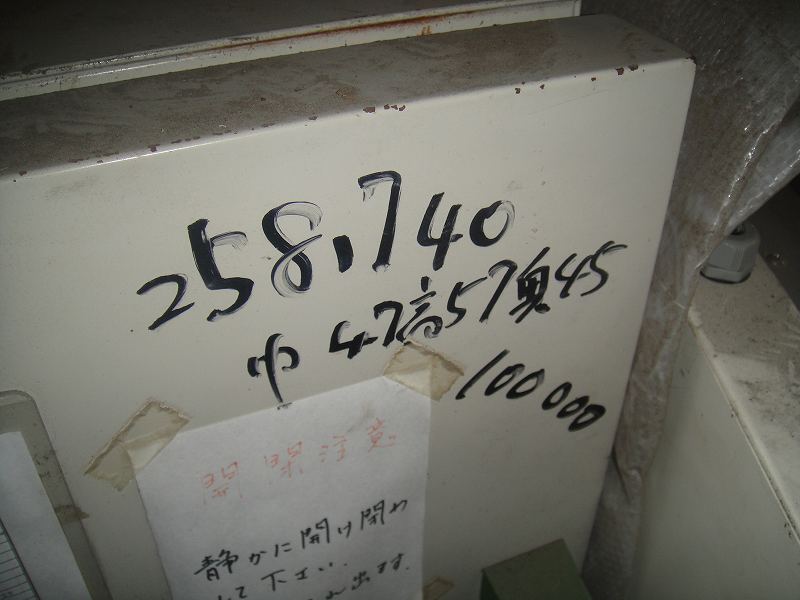 258,740
巾 47高57奥45
100000
開閉注意
静かに開け閉め
して下さい.
れ出ます.